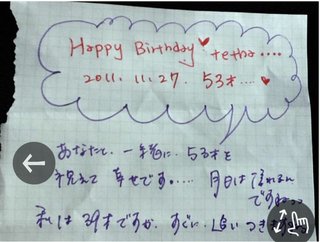 Happy Birthday♥tetha‥‥
2011. 11. 27. 53才‥‥♥
あなたと、一緒に、53才を
祝えて 幸せです。‥‥ 月日は 流れるん
ですねっ
私は 39才ですが、すぐに、 つき